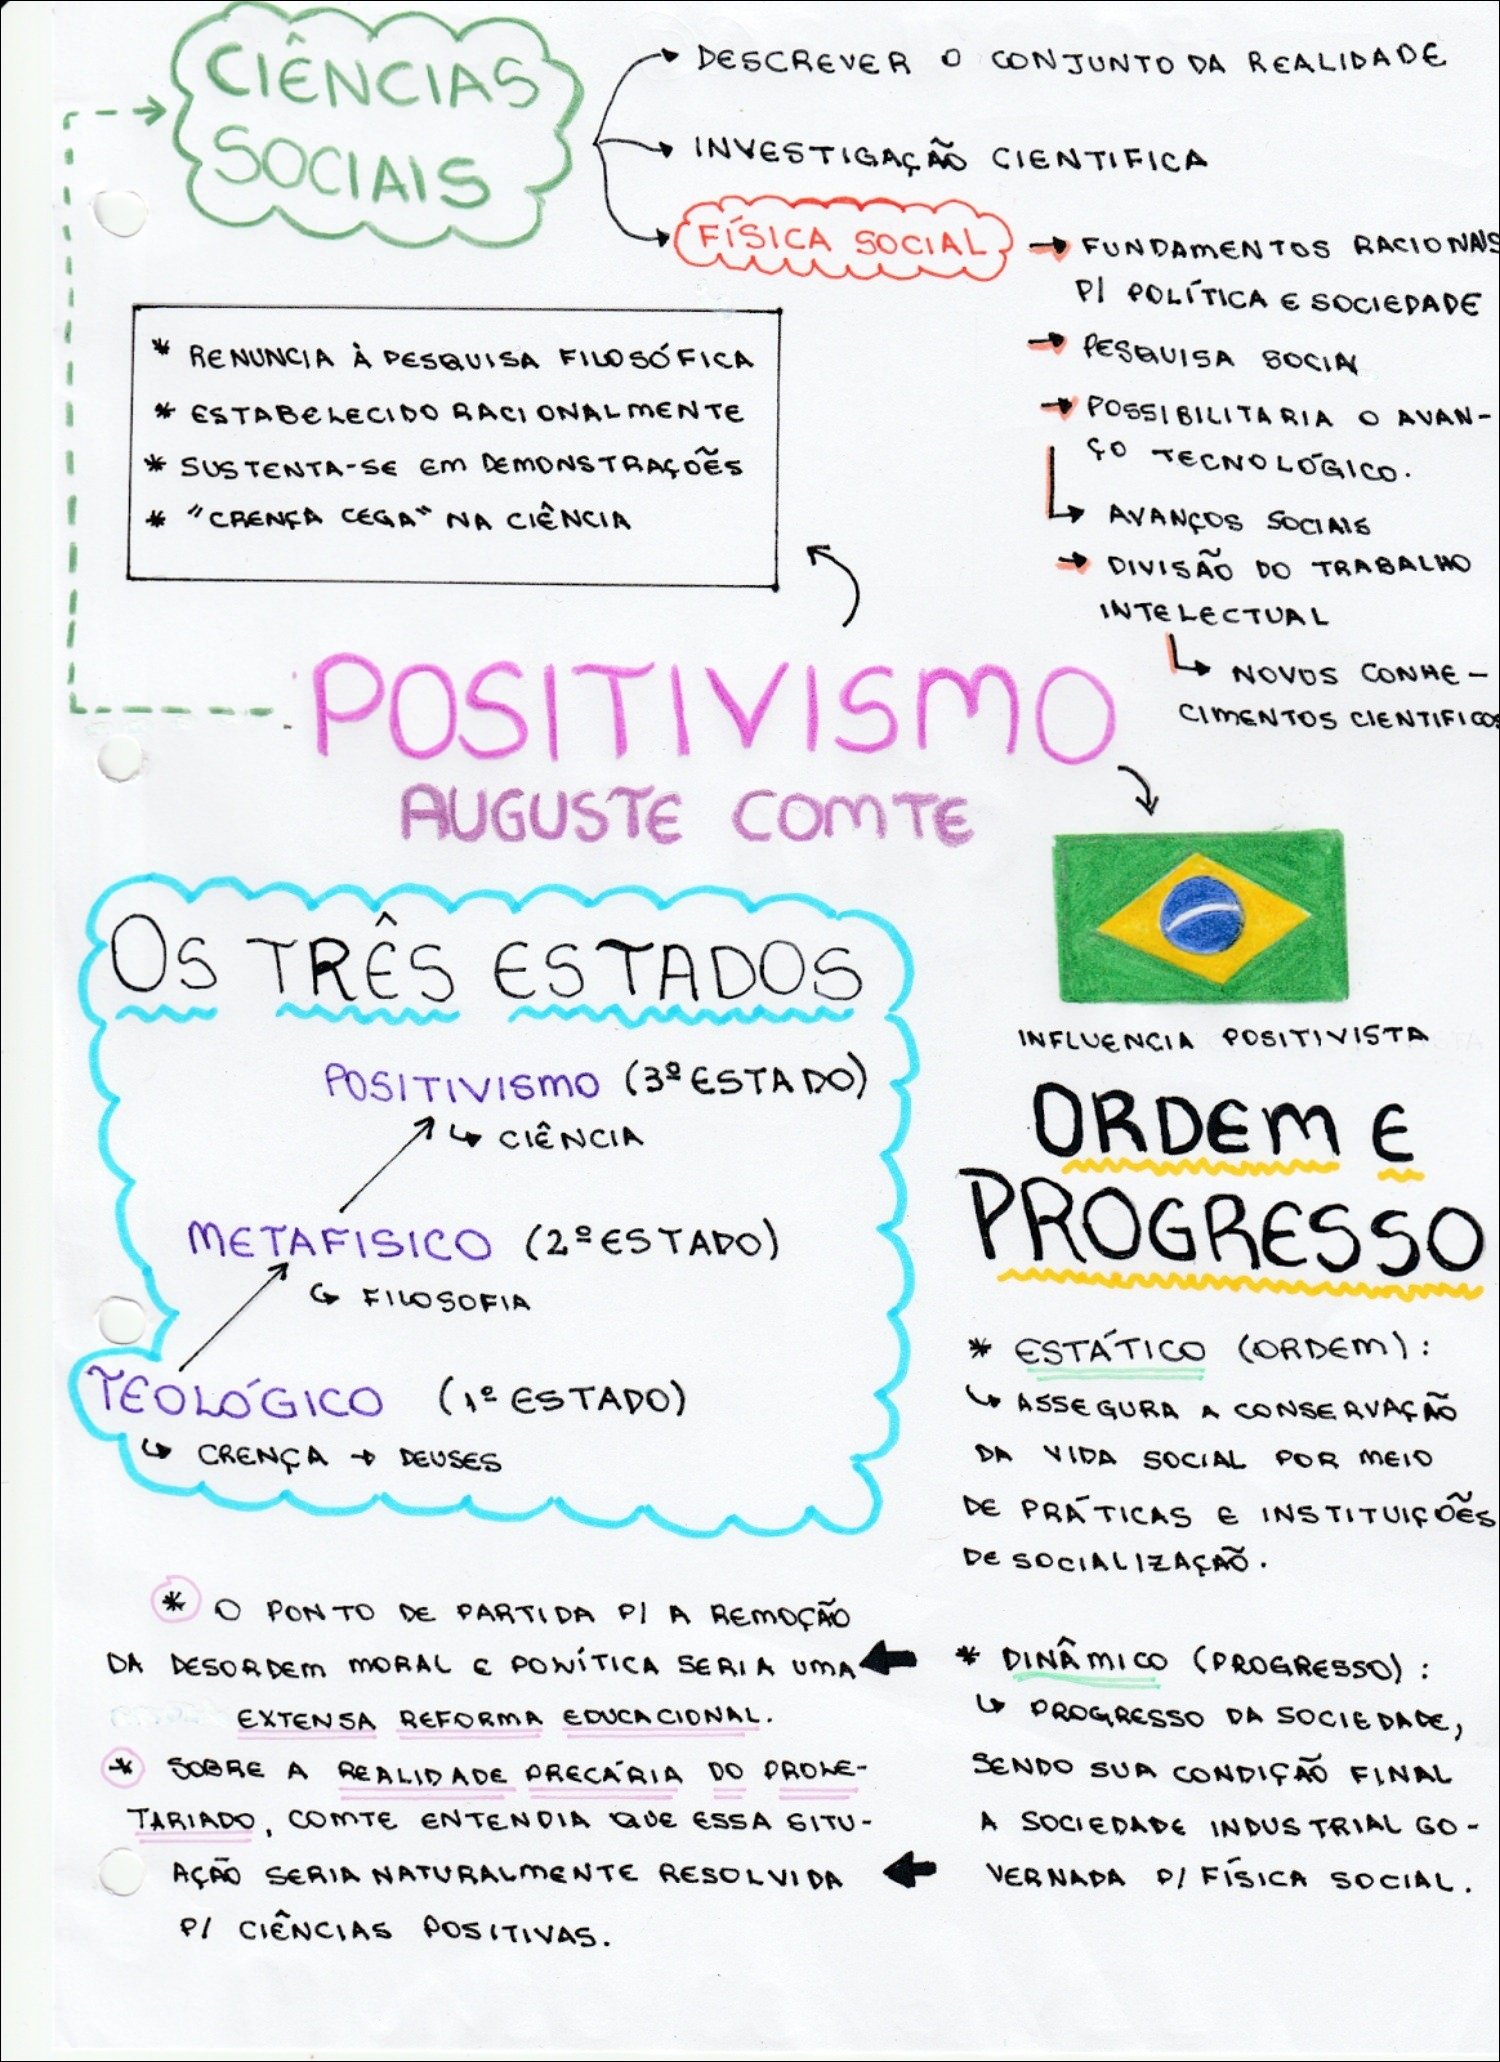 CIÊNCIAS
SOCIAIS
DESCREVER O CONJUNTO DA REALIDADE
INVESTIGAÇÃO CIENTIFICA
FÍSICA SOCIAL
FUNDAMENTOS RACIONAIS
P/ POLÍTICA E SOCIEDADE
PESQUISA SOCIAL
POSSIBILITARIA O AVAN-
ÇO TECNOLÓGICO.
AVANÇOS SOCIAIS
DIVISÃO DO TRABALHO
INTELECTUAL
NOVOS CONHE-
CIMENTOS CIENTIFICOS
* RENUNCIA À PESQUISA FILOSÓFICA
* ESTABELECIDO RACIONALMENTE
* SUSTENTA-SE EM DEMONSTRAÇÕES
* "CRENÇA CEGA" NA CIÊNCIA
POSITIVISMO
AUGUSTE COMTE
INFLUENCIA POSITIVISTA
OS TRÊS ESTADOS
POSITIVISMO (3º ESTADO)
CIÊNCIA
METAFISICO (2º ESTADO)
FILOSOFIA
TEOLÓGICO (1º ESTADO)
CRENÇA → DEUSES
ORDEM E
PROGRESSO
* ESTÁTICO (ORDEM):
ASSEGURA A CONSERVAÇÃO
DA VIDA SOCIAL POR MEIO
DE PRÁTICAS E INSTITUIÇÕES
DE SOCIALIZAÇÃO.
* DINÂMICO (PROGRESSO):
PROGRESSO DA SOCIEDADE,
SENDO SUA CONDIÇÃO FINAL
A SOCIEDADE INDUSTRIAL GO-
VERNADA P/ FÍSICA SOCIAL.
* O PONTO DE PARTIDA P/ A REMOÇÃO
DA DESORDEM MORAL E POLÍTICA SERIA UMA
EXTENSA REFORMA EDUCACIONAL.
* SOBRE A REALIDADE PRECÁRIA DO PROLE-
TARIADO, COMTE ENTENDIA QUE ESSA SITU-
AÇÃO SERIA NATURALMENTE RESOLVIDA
P/ CIÊNCIAS POSITIVAS.